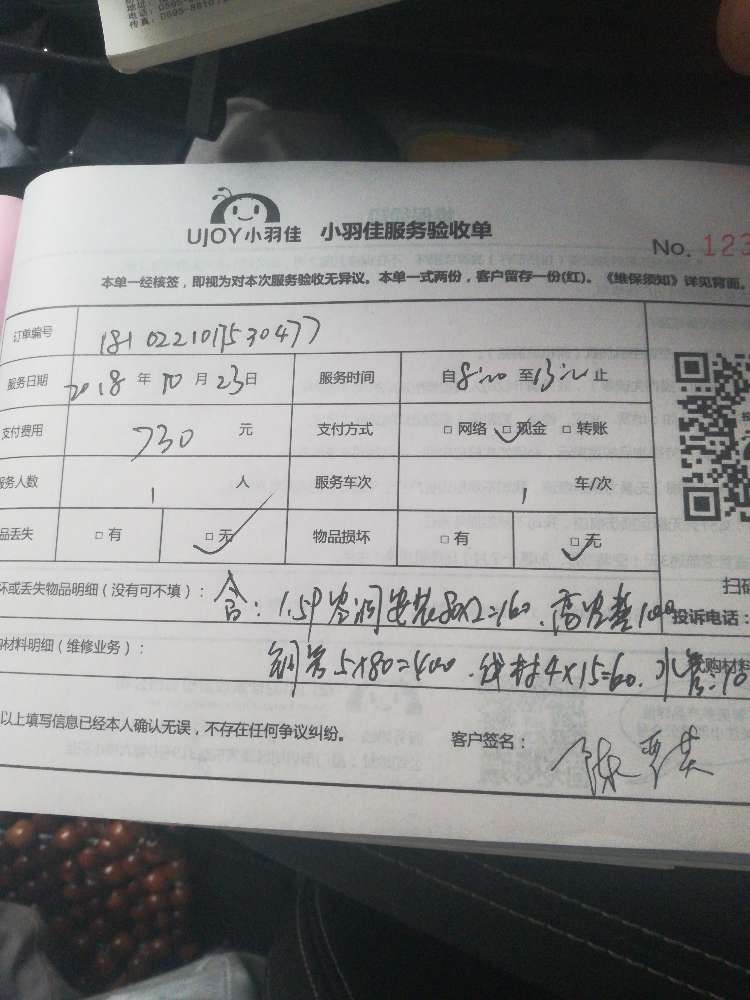 电话：0595-8810
传真：0595-881
UJOY小羽佳 小羽佳服务验收单
No. 123
本单一经核签，即视为对本次服务验收无异议。本单一式两份，客户留存一份(红)。《维保须知》详见背面。
订单编号 1810221017530477
服务日期 2018 年 10 月 23 日 服务时间 自 8:00 至 13:00 止
支付费用 730 元 支付方式 □ 网络 □ 现金 □ 转账
服务人数 1 人 服务车次 1 车/次
品丢失 □ 有 □ 无 物品损坏 □ 有 □ 无
坏或丢失物品明细（没有可不填）： 含：1.5P 空调安装80×2=160、高空费100
扫码
投诉电话：
购材料明细（维修业务）： 铜管5×80=400、线材4×15=60、水管:10
购材料
以上填写信息已经本人确认无误，不存在任何争议纠纷。
客户签名：